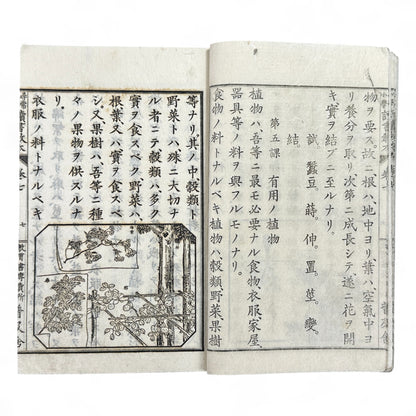 物ヲ要ス。故ニ根ハ地中ヨリ葉ハ空氣中ヨ
リ養分ヲ取リ次第ニ成長シテ遂ニ花ヲ開
キ實ヲ結ブニ至ルナリ。
試 蠶豆 蒔 伸 置 莖 變
結
第五課 有用ノ植物
植物ハ吾等ニ最モ必要ナル食物衣服家屋
器具等ノ料ヲ與フルモノナリ。
食物ノ料トナルベキ植物ハ穀類野菜果樹
等ナリ。其ノ中穀類ト
野菜トハ殊ニ大切ナ
ル者ニテ穀類ハ多ク
實ヲ食スベク野菜ハ
根葉又ハ實ヲ食スベ
シ。又果樹ハ吾等ニ種
々ノ果物ヲ供スルナ
リ。
衣服ノ料トナルベキ
讀書教本 卷七
七
普及舍